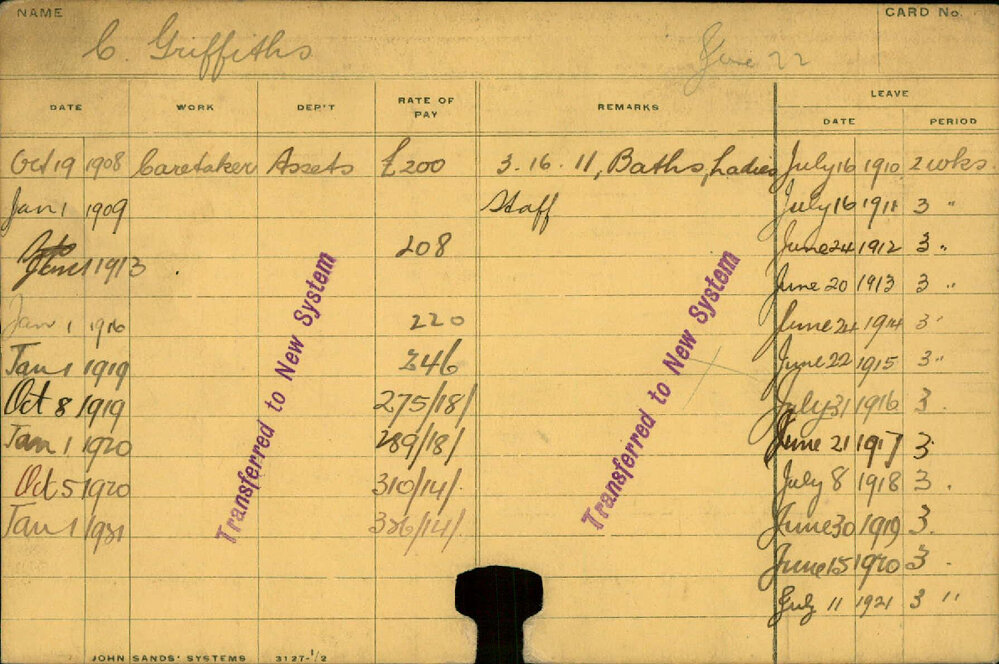 NAME
CARD No.
C. Griffiths
June 22
DATE WORK DEP'T RATE OF PAY REMARKS LEAVE
DATE PERIOD
Oct 19 1908 Caretaker Assets £200 3. 16. 11, Baths, Ladies July 16 1910 2 wks.
Jan 1 1909 Staff July 16 1911 3 "
208 June 24 1912 3 "
Jan 1 1913 June 20 1913 3 "
Jan 1 1916 220 June 24 1914 3 "
Jan 1 1919 246 June 22 1915 3 "
Oct 8 1919 275/18/ July 31 1916 3
Jan 1 1920 289/18/ June 21 1917 3
Oct 5 1920 310/14/. July 8 1918 3
Jan 1 1921 326/14/. June 30 1919 3
June 15 1920 3
July 11 1921 3 "
Transferred to New System
Transferred to New System
JOHN SANDS' SYSTEMS 3127-1/2